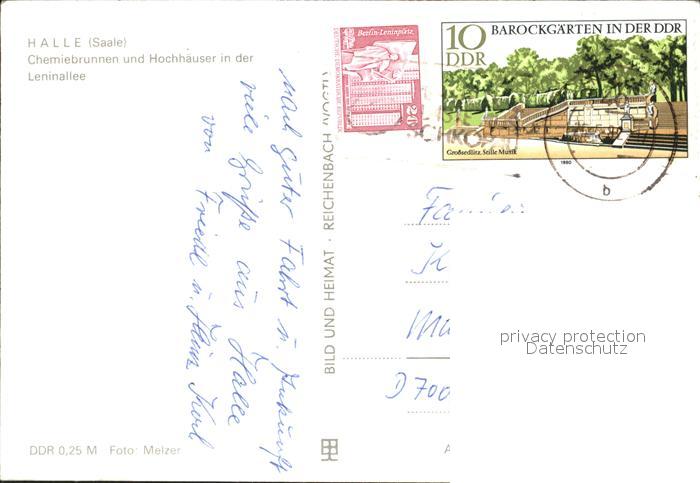 HALLE (Saale)
Chemiebrunnen und Hochhäuser in der
Leninallee
Nach guter Fahrt u. Ankunft
viele Grüße aus Halle
von Friedl u. Heinz
DDR 0,25 M Foto: Melzer
BILD UND HEIMAT · REICHENBACH (VOGTL)
Berlin-Leninplatz
DEUTSCHE DEMOKRATISCHE REPUBLIK
20
10
DDR
BAROCKGÄRTEN IN DER DDR
Großsedlitz, Stille Musik
1980
SCHKOP
b
D 700
A
privacy protection
Datenschutz